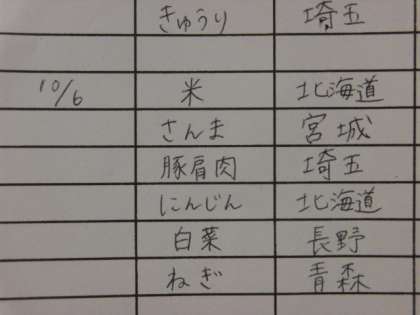 きゅうり 埼玉
10/6 米 北海道
さんま 宮城
豚肩肉 埼玉
にんじん 北海道
白菜 長野
ねぎ 青森